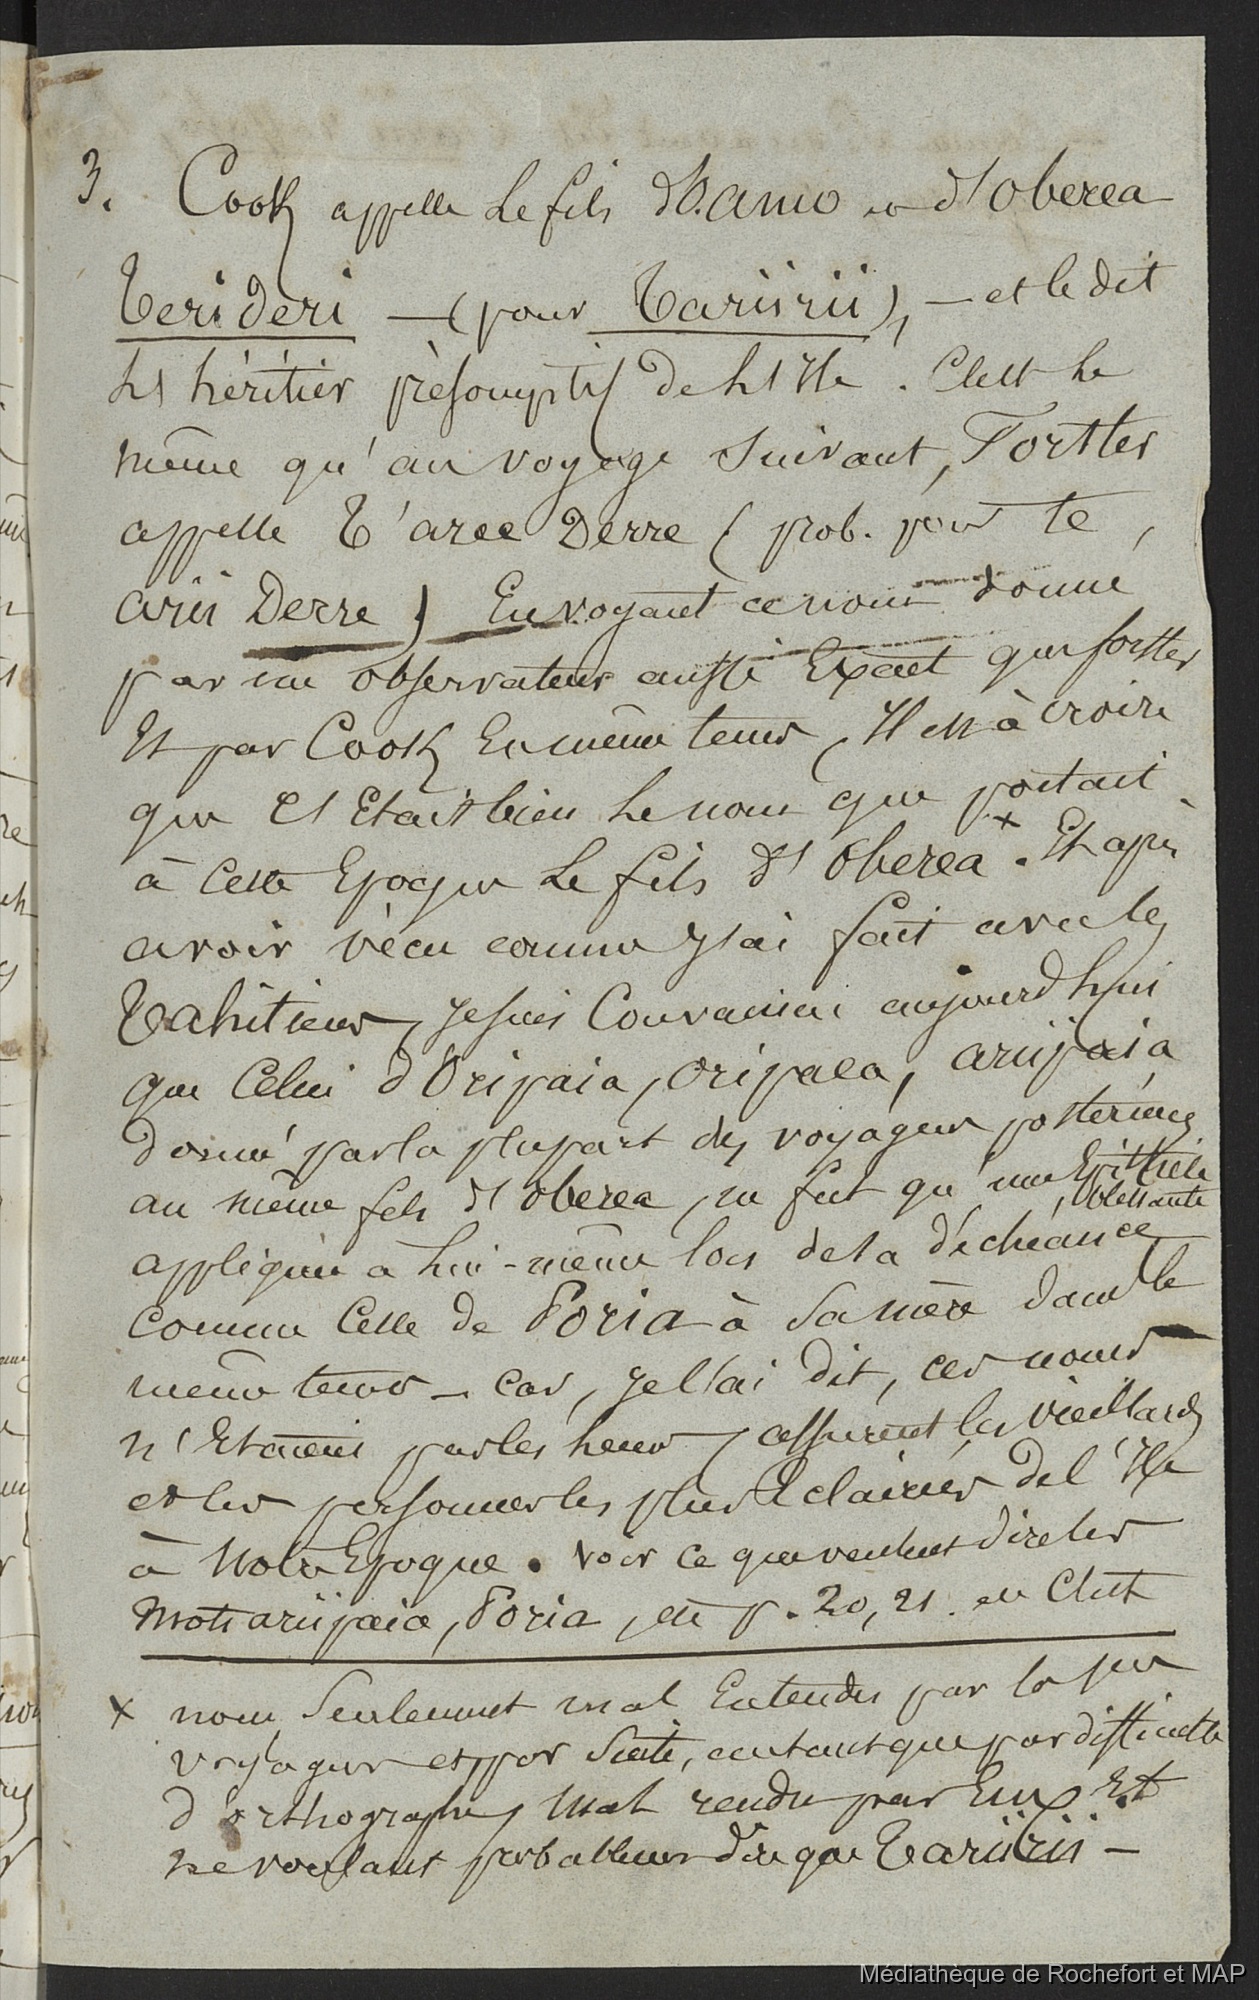 3. Cook appelle Le fils d'O.amo et d'Oberea
Teri deri — (pour Tariirii), — et le dit
L'héritier présomptif de L'Île. C'est Le
même qu'au voyage Suivant, Forster
appelle T'aree Derre (prob. pour te
arii Derre) En voyant ce nom donné
par un observateur aussi Exact que forster
Et par Cook En même tems, Il est à croire
que C'Etait bien Le nom que portait
à cette Epoque Le fils d'Oberea x. Et après
avoir vécu comme J'ai fait avec les
Tahitiens, Je suis Convaincu aujourd'hui
que Celui d'Oripaia, oripaea, ariipaia
donné par la plupart des voyageurs postérieurs
au même fils d'Oberea, ne fut qu'une Epithète
blessante
appliquée a Lui-même lors de sa déchéance
comme Celle de Poria à Sa mère dans le
même tems — car, Je l'ai dit, ces noms
n'Etaient pas les leurs, assurent les vieillards
et les personnes les plus Eclairées de l'Île
à Notre Epoque. voir ce que veulent dire les
mots ariipaia, Poria, etc p. 20, 21. et C'est
x nom Seulement mal Entendu par les
voyageurs et, par Suite, autant que par difficulté
d'orthographe, Mal rendu par Eux Et
ne voulant probablement dire que Tariirii —
Médiathèque de Rochefort et MAP